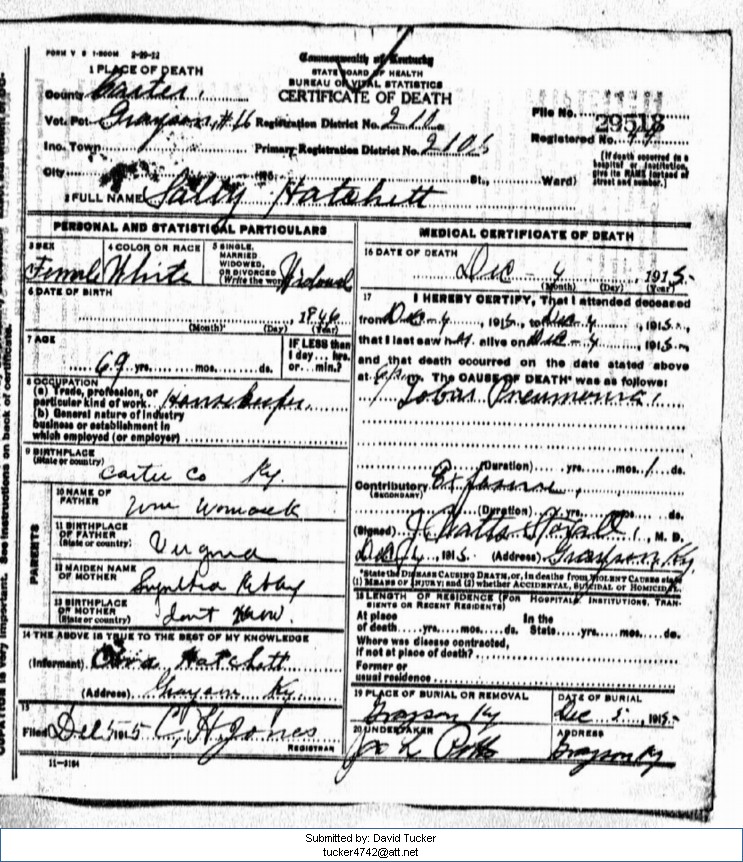 FORM V S 1-500M 9-29-12
Commonwealth of Kentucky
STATE BOARD OF HEALTH
BUREAU OF VITAL STATISTICS
CERTIFICATE OF DEATH
1 PLACE OF DEATH
County Carter
Vot. Pct. Grayson #16 Registration District No. 210
File No. 29518
Ino. Town Primary Registration District No. 2105
Registered No. 44
City No. St., Ward)
(If death occurred in a hospital or institution, give its NAME instead of street and number.)
2 FULL NAME Sally Hatchett
PERSONAL AND STATISTICAL PARTICULARS
3 SEX Female
4 COLOR OR RACE White
5 SINGLE, MARRIED WIDOWED, OR DIVORCED (Write the word) Widowed
6 DATE OF BIRTH
, 1846
(Month) (Day) (Year)
7 AGE
69 yrs. mos. ds.
IF LESS than 1 day... hrs. or... min.?
8 OCCUPATION
(a) Trade, profession, or particular kind of work Housekeeper
(b) General nature of industry
business or establishment in
which employed (or employer)
9 BIRTHPLACE
(State or country) Carter Co Ky.
PARENTS
10 NAME OF FATHER Wm Womack
11 BIRTHPLACE OF FATHER (State or country)
12 MAIDEN NAME OF MOTHER
13 BIRTHPLACE OF MOTHER (State or country) dont Know
14 THE ABOVE IS TRUE TO THE BEST OF MY KNOWLEDGE
(Informant) Hatchett
(Address) Grayson Ky
15
Filed Dec 5 1915 C, H Jones
REGISTRAR
11-3184
MEDICAL CERTIFICATE OF DEATH
16 DATE OF DEATH
Dec 4 1915
(Month) (Day) (Year)
17 I HEREBY CERTIFY, That I attended deceased
from Dec 4, 1915, to Dec 4, 1915,
that I last saw her alive on Dec 4, 1915
and that death occurred on the date stated above
at m. The CAUSE OF DEATH* was as follows:
Lobar Pneumonia
(Duration) yrs. mos. 1 ds.
Contributory Exposure
(SECONDARY)
(Duration) yrs. mos. ds.
(Signed) J Watts Stovall, M. D.
Dec 4, 1915 (Address) Grayson Ky
*State the DISEASE CAUSING DEATH, or, in deaths from VIOLENT CAUSES state
(1) MEANS OF INJURY; and (2) whether ACCIDENTAL, SUICIDAL or HOMICIDAL.
18 LENGTH OF RESIDENCE (FOR HOSPITALS, INSTITUTIONS, TRANSIENTS OR RECENT RESIDENTS)
At place of death yrs. mos. ds. In the State yrs. mos. ds.
Where was disease contracted,
if not at place of death?
Former or
usual residence
19 PLACE OF BURIAL OR REMOVAL Grayson Ky
DATE OF BURIAL Dec 5, 1915
20 UNDERTAKER
ADDRESS Grayson Ky
Submitted by: David Tucker
tucker4742@att.net